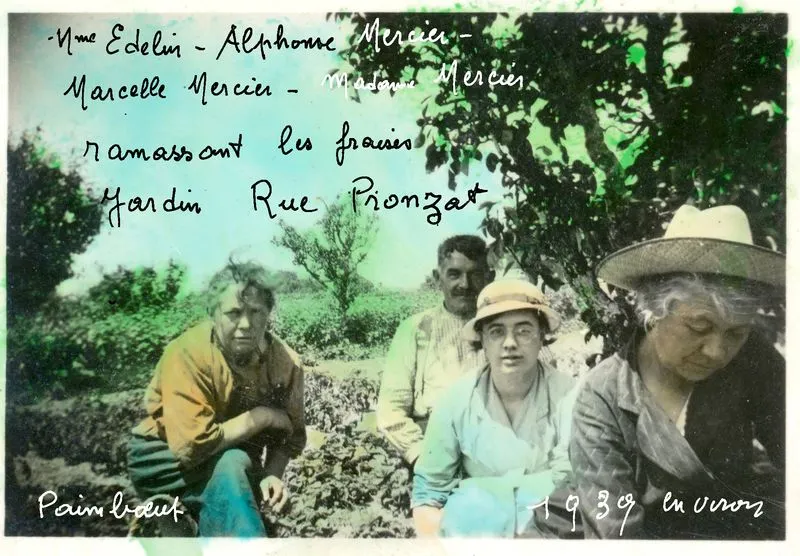 Mme Edelin - Alphonse Mercier -
Marcelle Mercier - Madame Mercier
ramassant les fraises
Jardin Rue Pionzat
Paimboeuf
1939 environ